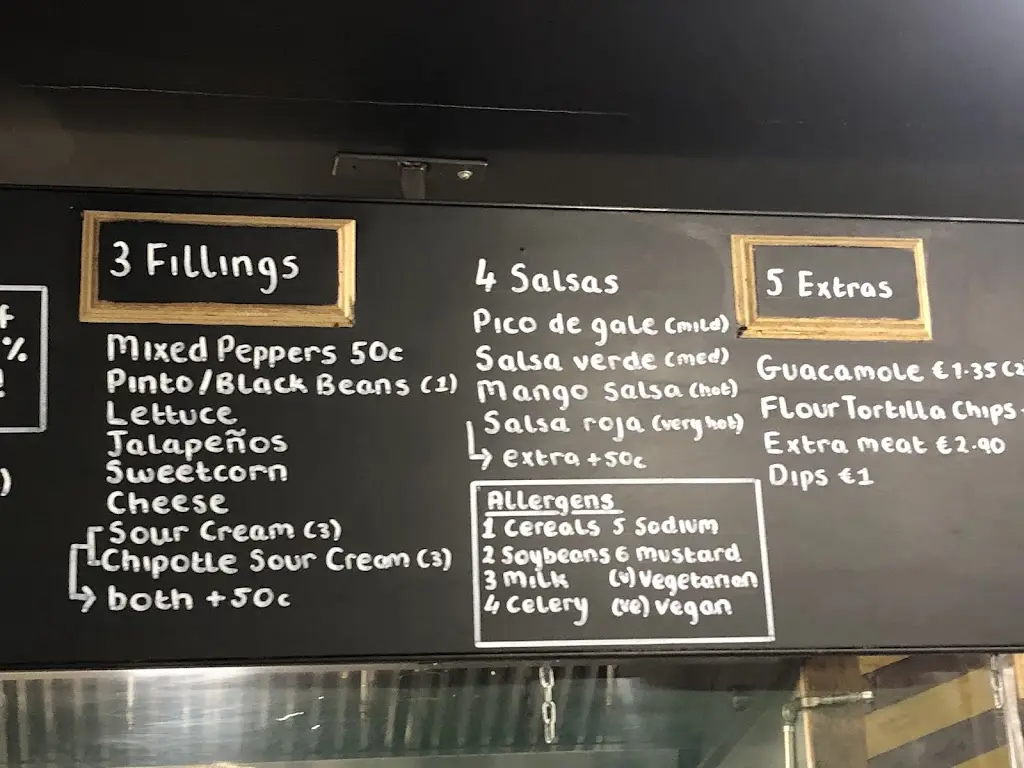 f
%
!
)
3 Fillings
Mixed Peppers 50c
Pinto/Black Beans (1)
Lettuce
Jalapeños
Sweetcorn
Cheese
Sour Cream (3)
Chipotle Sour Cream (3)
both +50c
4 Salsas
Pico de gale (mild)
Salsa verde (med)
Mango Salsa (hot)
Salsa roja (very hot)
extra +50c
Allergens
1 Cereals 5 Sodium
2 Soybeans 6 Mustard
3 Milk (v) Vegetarian
4 Celery (ve) Vegan
5 Extras
Guacamole €1.35 (2
Flour Tortilla Chips
Extra meat €2.90
Dips €1